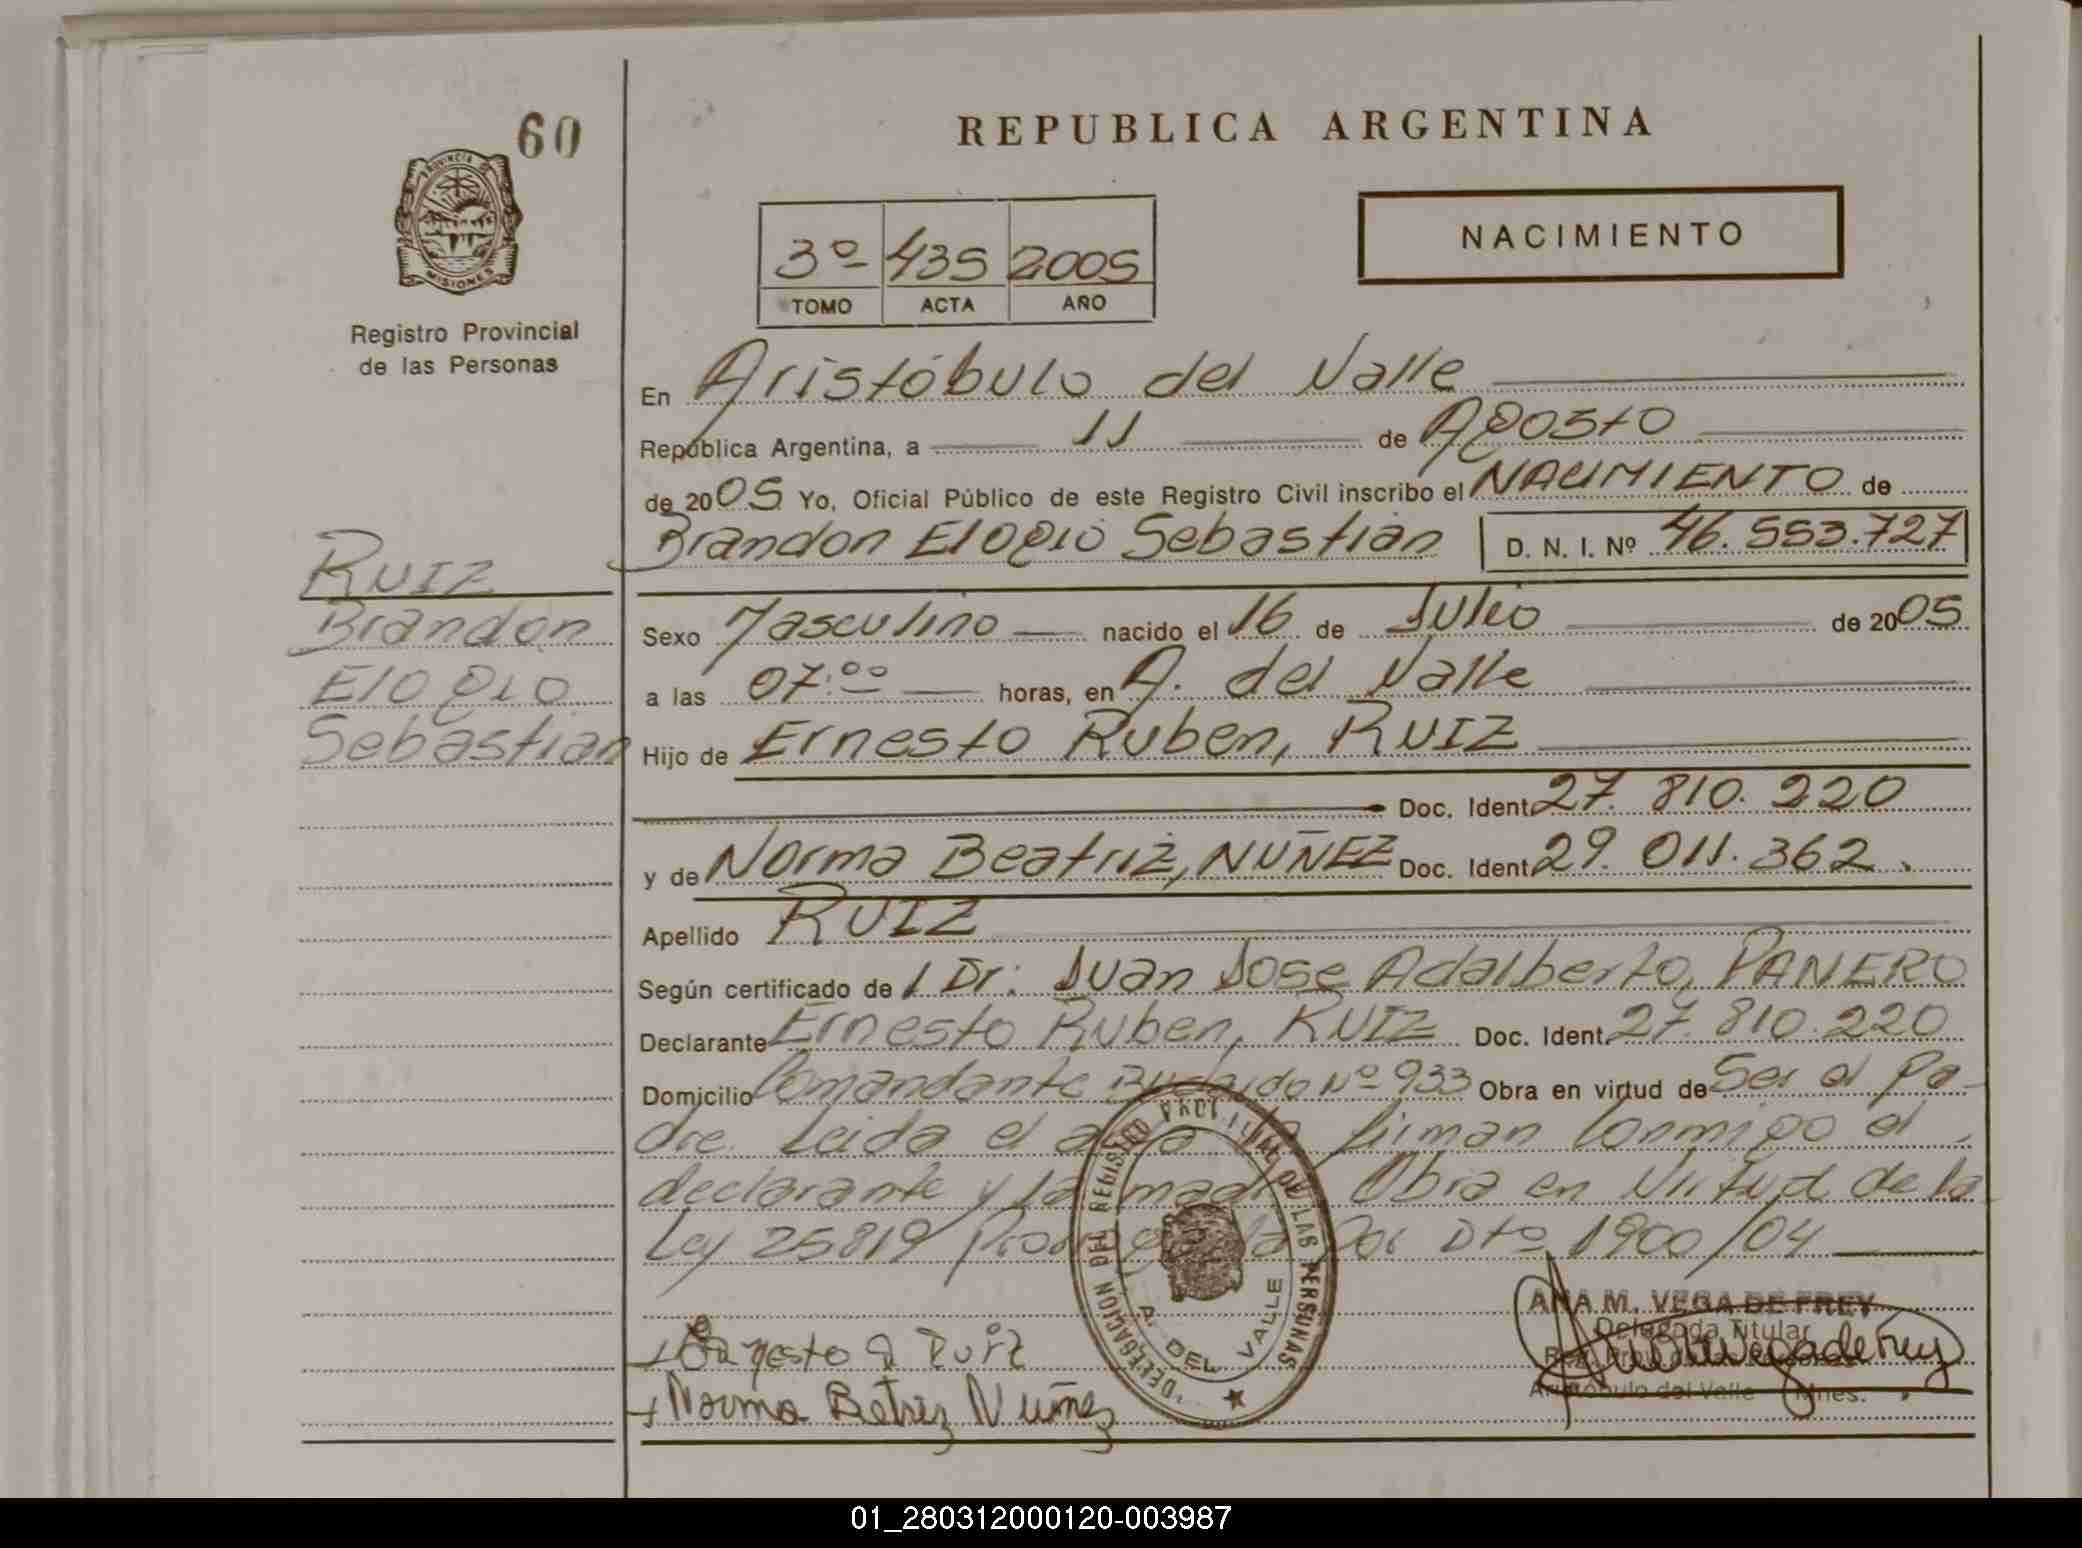 60
PROVINCIA DE
MISIONES
Registro Provincial
de las Personas
RUIZ
Brandon
Elogio
Sebastian
REPUBLICA ARGENTINA
3º 435 2005
TOMO ACTA AÑO
NACIMIENTO
En Aristóbulo del Valle
República Argentina, a 11 de Agosto
de 2005 Yo, Oficial Público de este Registro Civil inscribo el NACIMIENTO de
Brandon Elogio Sebastian D. N. I. Nº 46.553.727
Sexo Masculino nacido el 16 de Julio de 2005
a las 07:00 horas, en A. del Valle
Hijo de Ernesto Ruben, RUIZ
Doc. Ident. 27.810.220
y de Norma Beatriz, NUÑEZ Doc. Ident. 29.011.362.
Apellido RUIZ
Según certificado de l Dr: Juan Jose Adalberto, PANERO
Declarante Ernesto Ruben, RUIZ Doc. Ident. 27.810.220
Domicilio Comandante Nº 933 Obra en virtud de Ser el Pa-
dre. Leida el acta la firman Conmigo el
declarante y la madre. Obra en Virtud de la
Ley 25819 Por Dto 1900/04
DELEGACION DEL REGISTRO PROVINCIAL DE LAS PERSONAS
A. DEL VALLE
Ernesto R Ruiz
Norma Betriz Nuñez
ANA M. VEGA DE FREY
Delegada Titular
Aristóbulo del Valle Mnes.
01_280312000120-003987